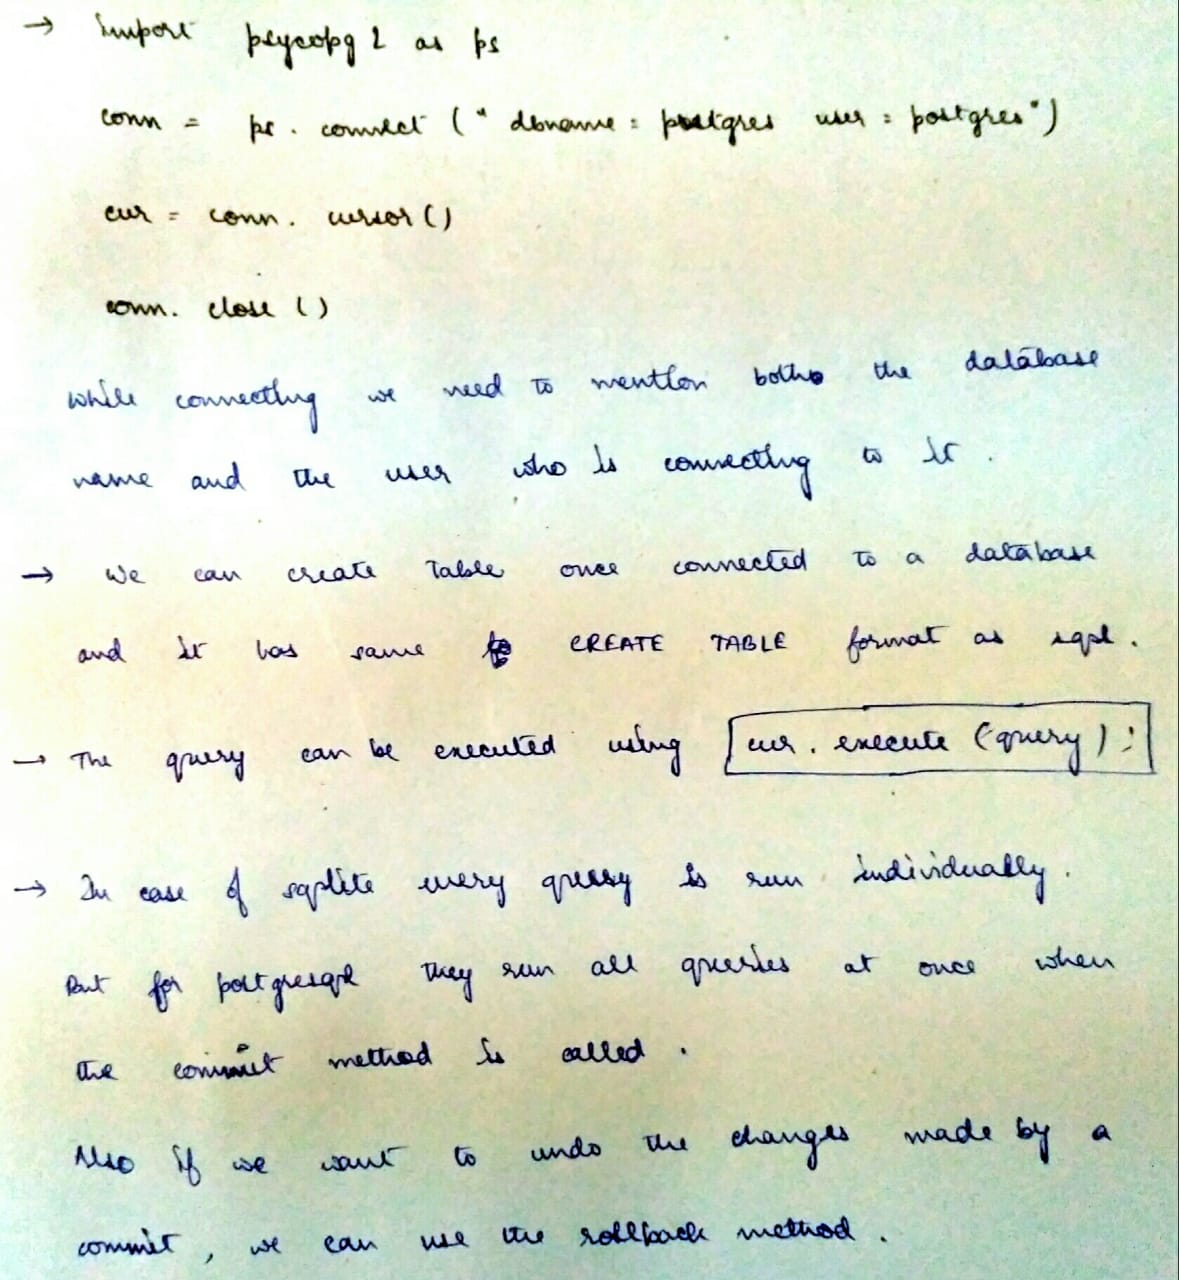 → import psycopg2 as ps
conn = ps. connect (" dbname = postgres user = postgres")
cur = conn. cursor()
conn. close ()
while connecting we need to mention both the database
name and the user who is connecting to it.
→ We can create Table once connected to a database
and it has same CREATE TABLE format as sql.
→ The query can be executed using cur. execute (query) :
→ In case of sqlite every query is run individually.
But for postgresql they run all queries at once when
the commit method is called.
Also if we want to undo the changes made by a
commit, we can use the rollback method.